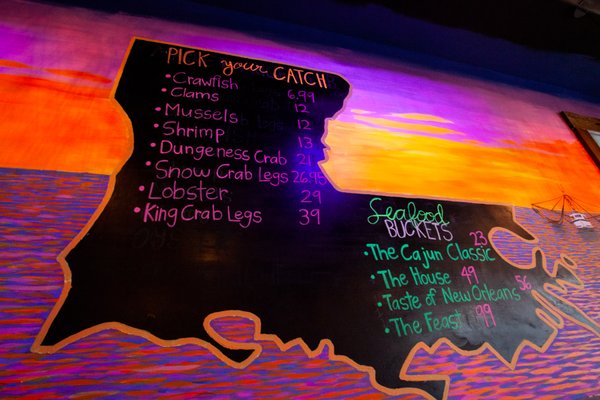 PICK your CATCH
• Crawfish 6.99
• Clams 12
• Mussels 12
• Shrimp 13
• Dungeness Crab 21
• Snow Crab Legs 26.95
• Lobster 29
• King Crab Legs 39
Seafood
BUCKETS
• The Cajun Classic 23
• The House 49
• Taste of New Orleans 56
• The Feast 79